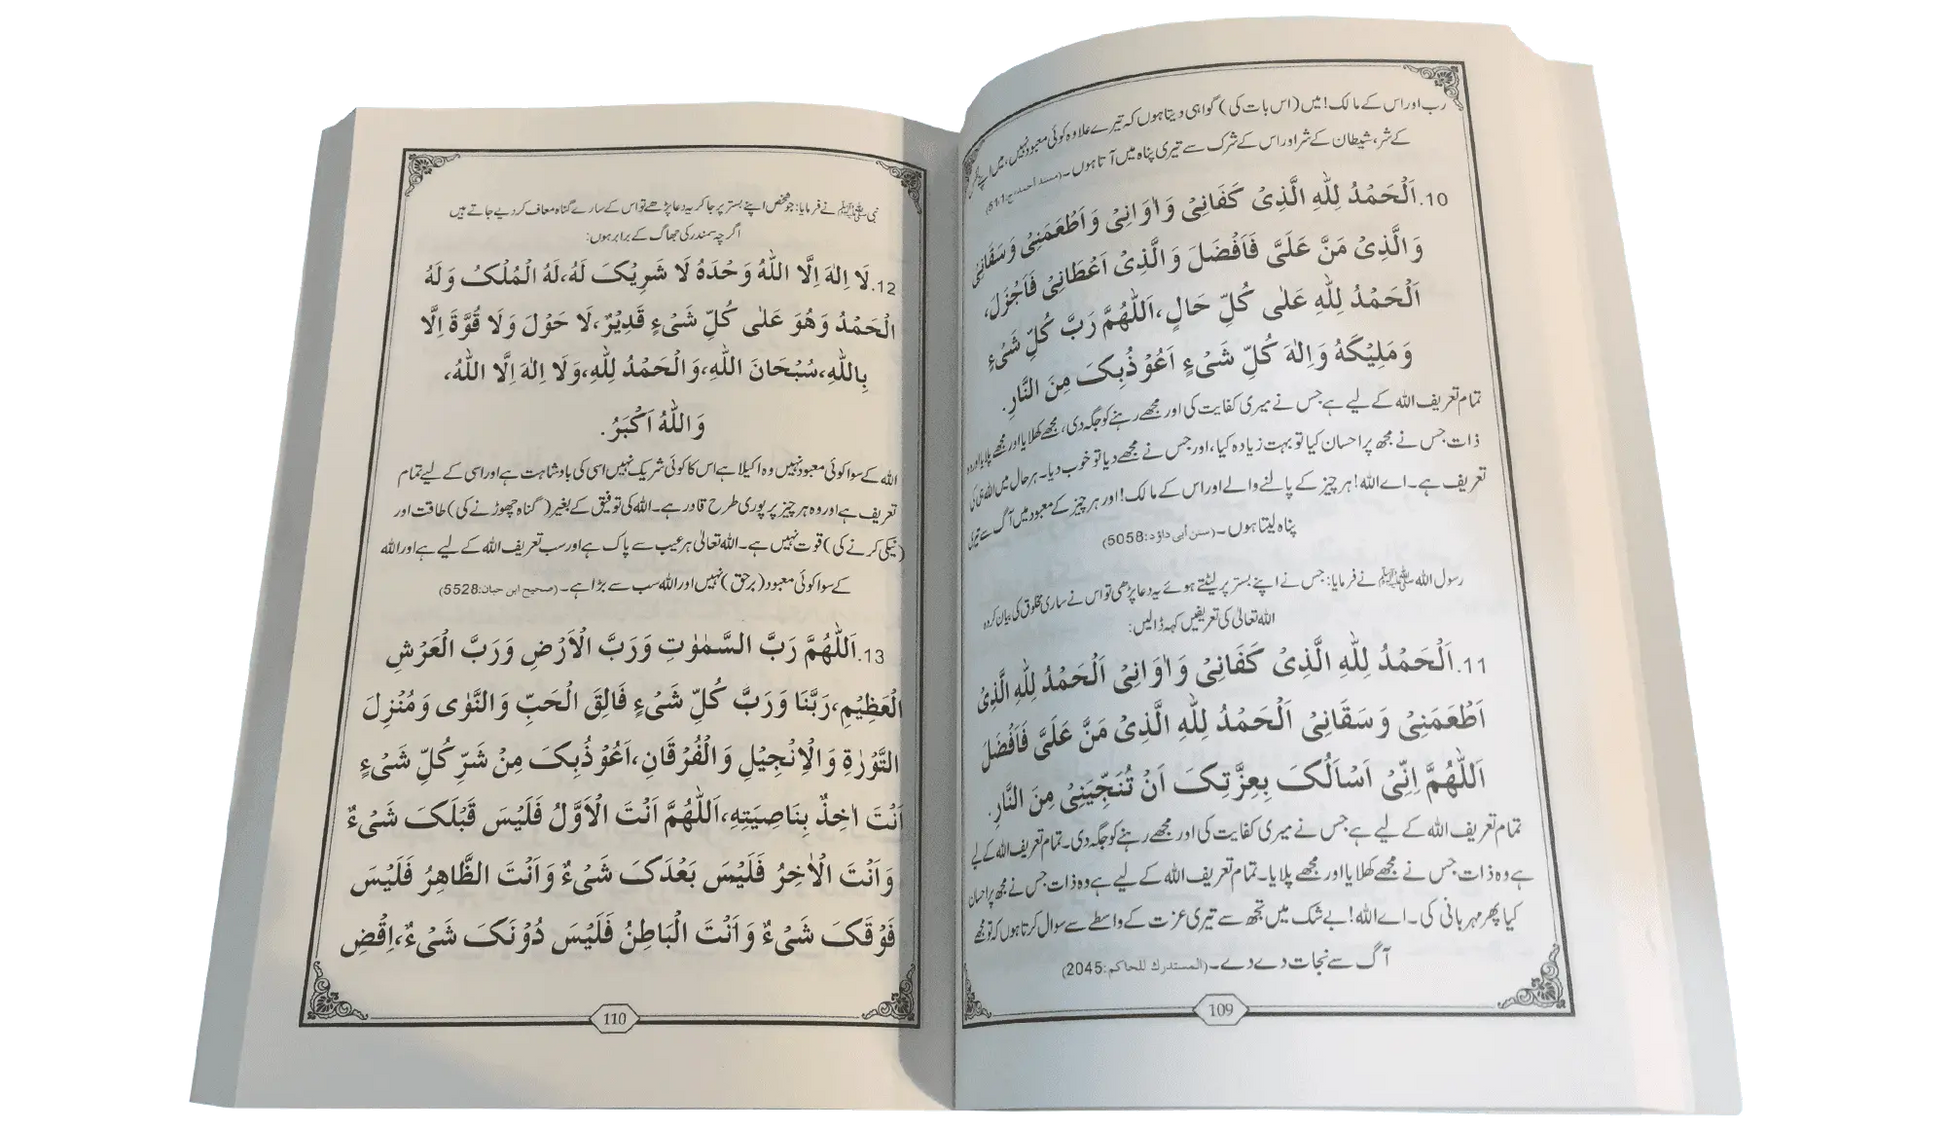 رب اور اس کے مالک! میں (اس بات کی) گواہی دیتا ہوں کہ تیرے علاوہ کوئی معبود نہیں، میں اپنے نفس
کے شر، شیطان کے شر اور اس کے شرک سے تیری پناہ میں آتا ہوں۔ (مسند احمد:
10. اَلْحَمْدُ لِلّٰهِ الَّذِیْ كَفَانِیْ وَاٰوَانِیْ وَاَطْعَمَنِیْ وَسَقَانِیْ
وَالَّذِیْ مَنَّ عَلَیَّ فَاَفْضَلَ وَالَّذِیْ اَعْطَانِیْ فَاَجْزَلَ،
اَلْحَمْدُ لِلّٰهِ عَلٰی كُلِّ حَالٍ،اَللّٰهُمَّ رَبَّ كُلِّ شَیْءٍ
وَمَلِیْكَهُ وَاِلٰهَ كُلِّ شَیْءٍ اَعُوْذُبِكَ مِنَ النَّارِ.
تمام تعریف اللہ کے لیے ہے جس نے میری کفایت کی اور مجھے رہنے کو جگہ دی، مجھے کھلایا اور مجھے پلایا اور وہ
ذات جس نے مجھ پر احسان کیا تو بہت زیادہ کیا، اور جس نے مجھے دیا تو خوب دیا۔ ہر حال میں اللہ ہی کی
تعریف ہے۔ اے اللہ! ہر چیز کے پالنے والے اور اس کے مالک! اور ہر چیز کے معبود میں آگ سے تیری
پناہ لیتا ہوں۔ (سنن أبی داؤد:5058)
رسول اللہ ﷺ نے فرمایا: جس نے اپنے بستر پر لیٹتے ہوئے یہ دعا پڑھی تو اس نے ساری مخلوق کی بیان کردہ
اللہ تعالیٰ کی تعریفیں کہہ ڈالیں:
11. اَلْحَمْدُ لِلّٰهِ الَّذِیْ كَفَانِیْ وَاٰوَانِیْ اَلْحَمْدُ لِلّٰهِ الَّذِیْ
اَطْعَمَنِیْ وَسَقَانِیْ اَلْحَمْدُ لِلّٰهِ الَّذِیْ مَنَّ عَلَیَّ فَاَفْضَلَ
اَللّٰهُمَّ اِنِّیْ اَسْاَلُكَ بِعِزَّتِكَ اَنْ تُنَجِّیَنِیْ مِنَ النَّارِ.
تمام تعریف اللہ کے لیے ہے جس نے میری کفایت کی اور مجھے رہنے کو جگہ دی۔ تمام تعریف اللہ کے لیے
ہے وہ ذات جس نے مجھے کھلایا اور مجھے پلایا۔ تمام تعریف اللہ کے لیے ہے وہ ذات جس نے مجھ پر احسان
کیا پھر مہربانی کی۔ اے اللہ! بے شک میں تجھ سے تیری عزت کے واسطے سے سوال کرتا ہوں کہ تو مجھے
آگ سے نجات دے دے۔ (المستدرك للحاكم:2045)
109
نبی ﷺ نے فرمایا: جو شخص اپنے بستر پر جا کر یہ دعا پڑھے تو اس کے سارے گناہ معاف کر دیے جاتے ہیں
اگرچہ سمندر کی جھاگ کے برابر ہوں:
12. لَا اِلٰهَ اِلَّا اللّٰهُ وَحْدَهُ لَا شَرِیْكَ لَهُ،لَهُ الْمُلْكُ وَلَهُ
الْحَمْدُ وَهُوَ عَلٰی كُلِّ شَیْءٍ قَدِیْرٌ،لَا حَوْلَ وَلَا قُوَّةَ اِلَّا
بِاللّٰهِ،سُبْحَانَ اللّٰهِ،وَالْحَمْدُ لِلّٰهِ،وَلَا اِلٰهَ اِلَّا اللّٰهُ،
وَاللّٰهُ اَكْبَرُ.
اللہ کے سوا کوئی معبود نہیں وہ اکیلا ہے اس کا کوئی شریک نہیں اسی کی بادشاہت ہے اور اسی کے لیے تمام
تعریف ہے اور وہ ہر چیز پر پوری طرح قادر ہے۔ اللہ کی توفیق کے بغیر (گناہ چھوڑنے کی) طاقت اور
(نیکی کرنے کی) قوت نہیں ہے۔ اللہ تعالیٰ ہر عیب سے پاک ہے اور سب تعریف اللہ کے لیے ہے اور اللہ
کے سوا کوئی معبود (برحق) نہیں اور اللہ سب سے بڑا ہے۔ (صحیح ابن حبان:5528)
13. اَللّٰهُمَّ رَبَّ السَّمٰوٰتِ وَرَبَّ الْاَرْضِ وَرَبَّ الْعَرْشِ
الْعَظِیْمِ،رَبَّنَا وَرَبَّ كُلِّ شَیْءٍ فَالِقَ الْحَبِّ وَالنَّوٰی وَمُنْزِلَ
التَّوْرٰةِ وَالْاِنْجِیْلِ وَالْفُرْقَانِ،اَعُوْذُبِكَ مِنْ شَرِّ كُلِّ شَیْءٍ
اَنْتَ اٰخِذٌ بِنَاصِیَتِهِ،اَللّٰهُمَّ اَنْتَ الْاَوَّلُ فَلَیْسَ قَبْلَكَ شَیْءٌ
وَاَنْتَ الْاٰخِرُ فَلَیْسَ بَعْدَكَ شَیْءٌ وَاَنْتَ الظَّاهِرُ فَلَیْسَ
فَوْقَكَ شَیْءٌ وَاَنْتَ الْبَاطِنُ فَلَیْسَ دُوْنَكَ شَیْءٌ،اِقْضِ
110